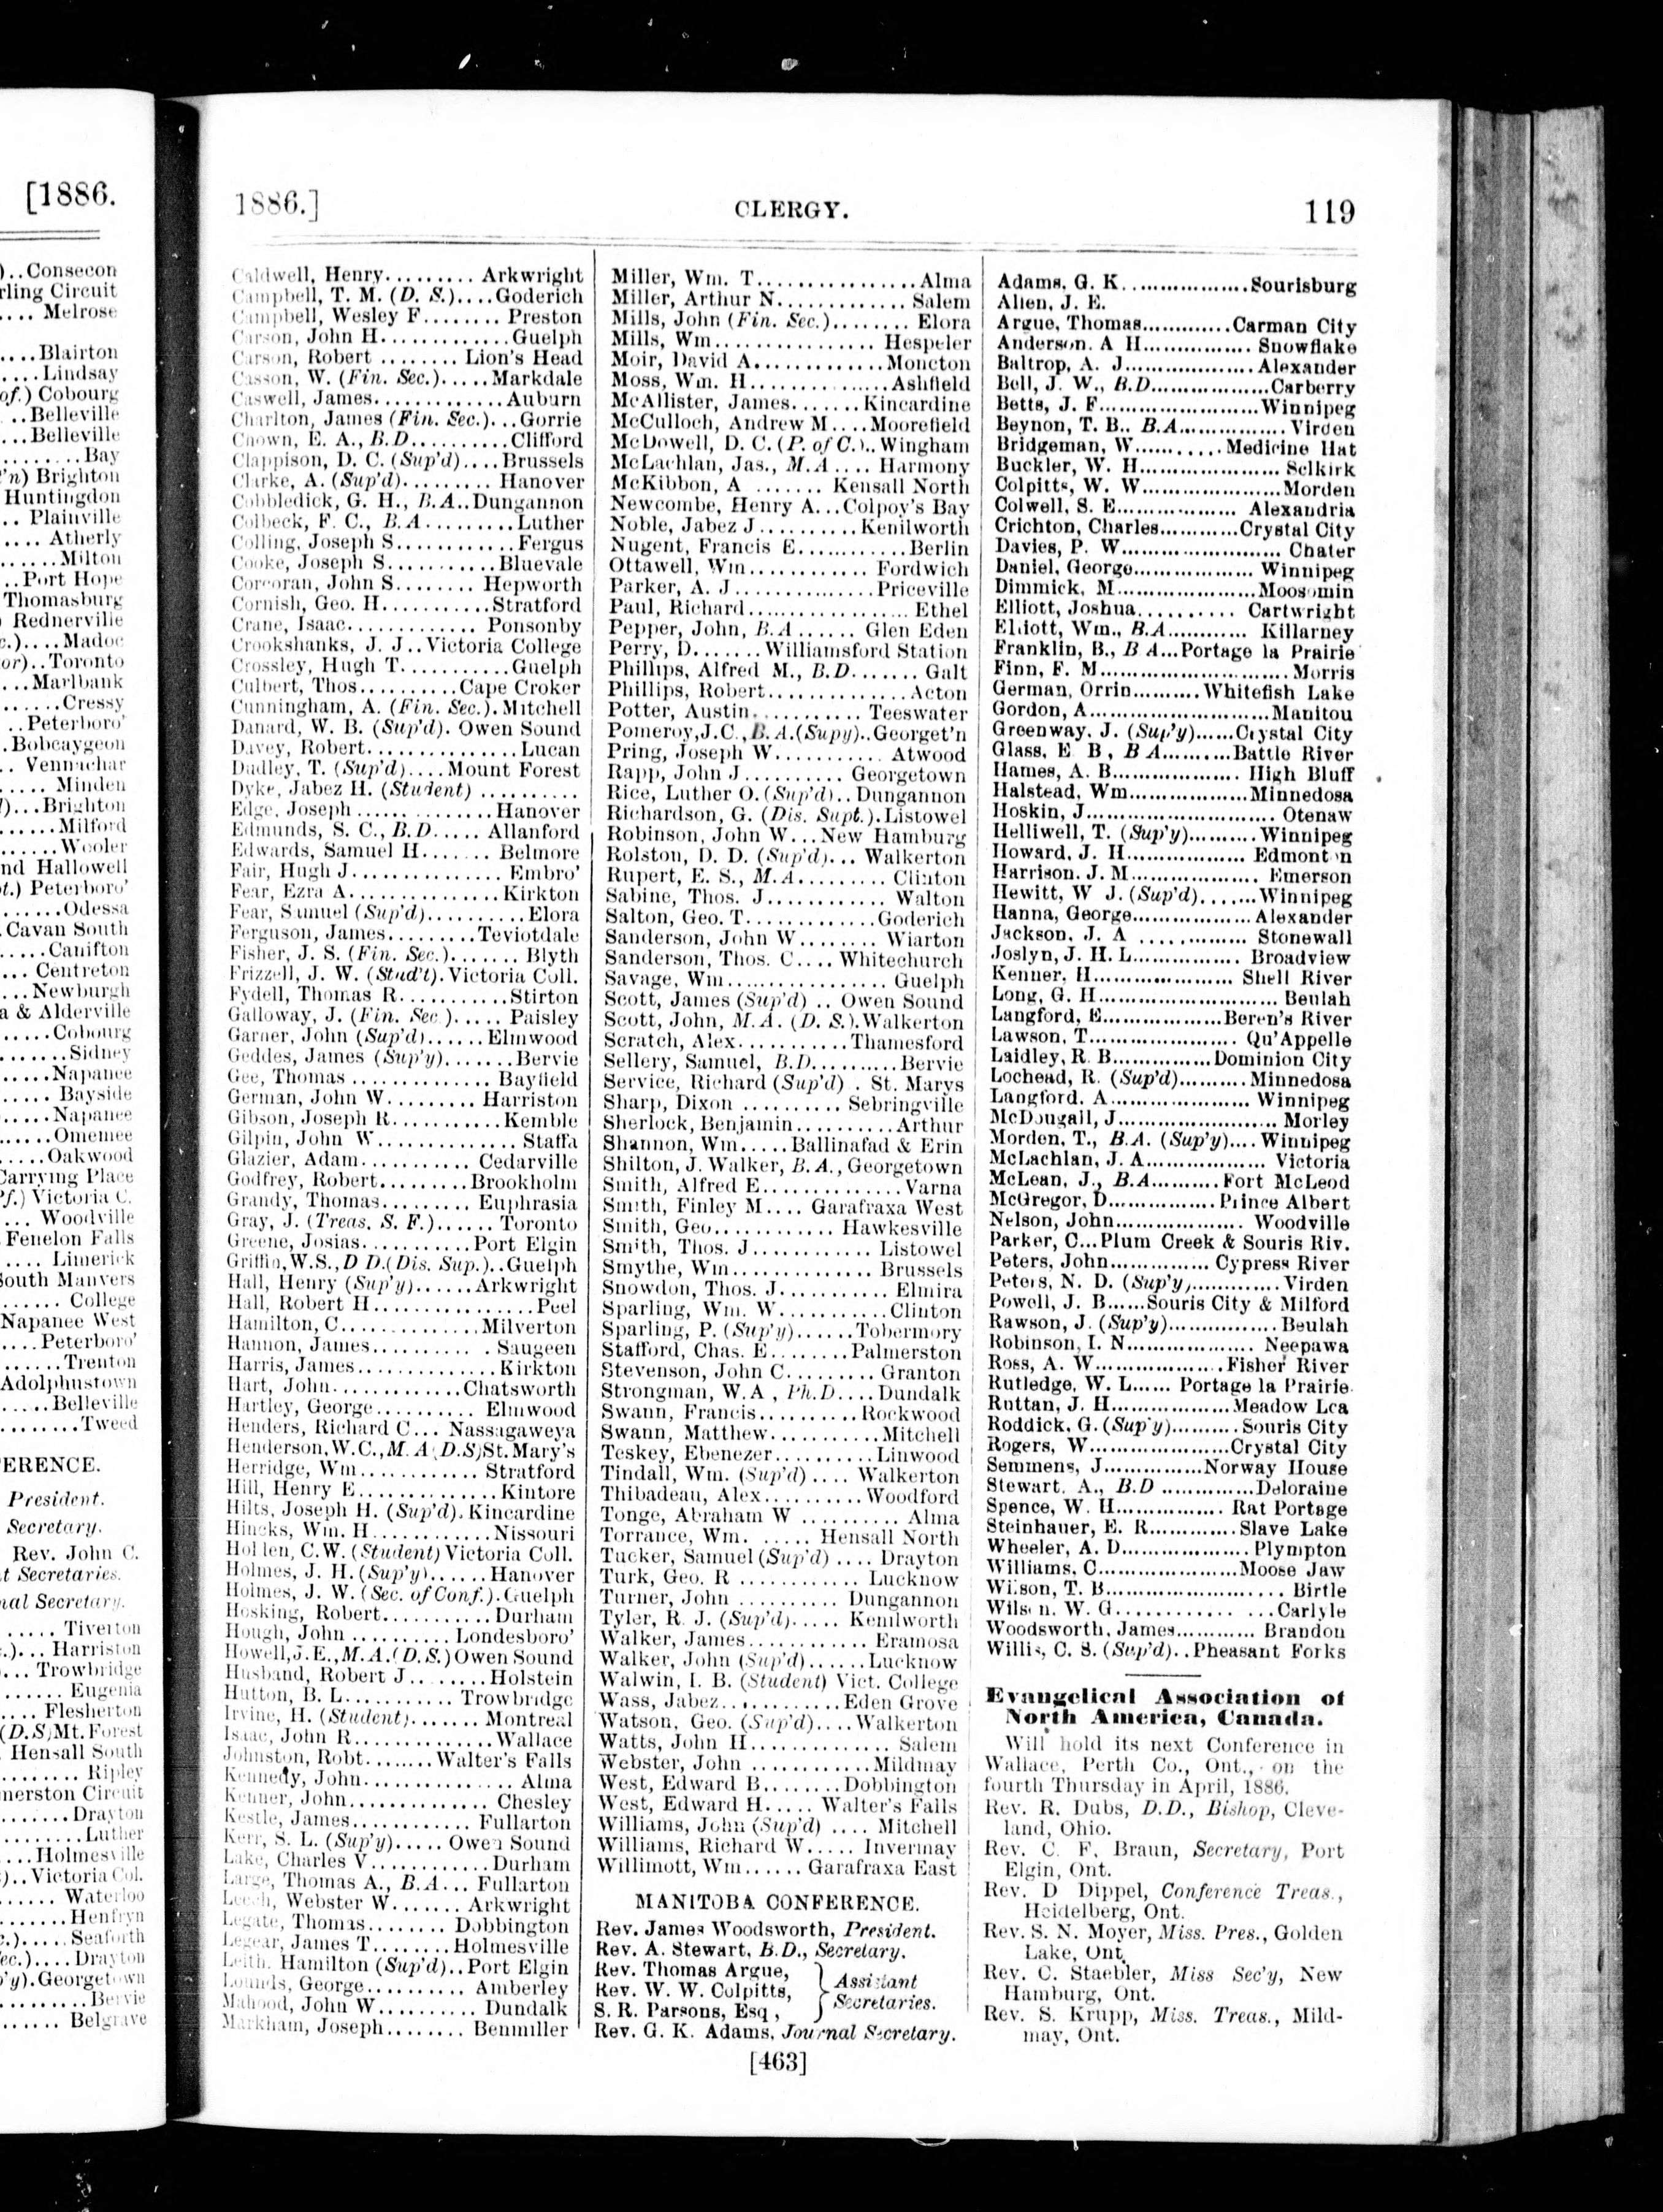 [1886.
)..Consecon
rling Circuit
.... Melrose
....Blairton
....Lindsay
of.) Cobourg
...Belleville
...Belleville
.........Bay
'n) Brighton
Huntingdon
.. Plainville
.... Atherly
......Milton
..Port Hope
Thomasburg
) Rednerville
c.)....Madoc
or)..Toronto
...Marlbank
......Cressy
..Peterboro'
.Bobcaygeon
.. Vennachar
..... Minden
l)...Brighton
......Milford
......Wooler
nd Hallowell
t.) Peterboro'
.......Odessa
.Cavan South
.....Canifton
... Centreton
...Newburgh
a & Alderville
.....Cobourg
.......Sidney
.....Napanee
..... Bayside
.....Napanee
.....Omemee
.....Oakwood
Carrying Place
Pf.) Victoria C.
... Woodville
Fenelon Falls
.... Limerick
South Manvers
...... College
Napanee West
....Peterboro'
......Trenton
Adolphustown
.....Belleville
........Tweed
ERENCE.
President.
Secretary.
Rev. John C.
t Secretaries.
nal Secretary.
..... Tiverton
.)... Harriston
)... Trowbridge
...... Eugenia
.... Flesherton
(D.S)Mt.Forest
. Hensall South
......... Ripley
merston Circuit
.......Drayton
.........Luther
...Holmesville
)..Victoria Col.
...... Waterloo
.......Henfryn
c.).....Seaforth
ec.)....Drayton
'y).Georgetown
.........Bervie
...... Belgrave
1886.] CLERGY. 119
Caldwell, Henry......... Arkwright
Campbell, T. M. (D. S.)....Goderich
Campbell, Wesley F........ Preston
Carson, John H.............Guelph
Carson, Robert ........ Lion's Head
Casson, W. (Fin. Sec.).....Markdale
Caswell, James.............Auburn
Charlton, James (Fin. Sec.)...Gorrie
Chown, E. A., B.D..........Clifford
Clappison, D. C. (Sup'd)....Brussels
Clarke, A. (Sup'd)......... Hanover
Cobbledick, G. H., B.A..Dungannon
Colbeck, F. C., B.A.........Luther
Colling, Joseph S............Fergus
Cooke, Joseph S...........Bluevale
Corcoran, John S........ Hepworth
Cornish, Geo. H...........Stratford
Crane, Isaac............. Ponsonby
Crookshanks, J. J..Victoria College
Crossley, Hugh T...........Guelph
Culbert, Thos..........Cape Croker
Cunningham, A. (Fin. Sec.).Mitchell
Danard, W. B. (Sup'd). Owen Sound
Davey, Robert...............Lucan
Dudley, T. (Sup'd)....Mount Forest
Dyke, Jabez H. (Student) ..........
Edge, Joseph ..............Hanover
Edmunds, S. C., B.D..... Allanford
Edwards, Samuel H....... Belmore
Fair, Hugh J............... Embro'
Fear, Ezra A...............Kirkton
Fear, Samuel (Sup'd)..........Elora
Ferguson, James.........Teviotdale
Fisher, J. S. (Fin. Sec.)....... Blyth
Frizzell, J. W. (Stud't).Victoria Coll.
Fydell, Thomas R...........Stirton
Galloway, J. (Fin. Sec.)..... Paisley
Garner, John (Sup'd)......Elmwood
Geddes, James (Sup'y).......Bervie
Gee, Thomas .............. Bayfield
German, John W......... Harriston
Gibson, Joseph R...........Kemble
Gilpin, John W.............. Staffa
Glazier, Adam........... Cedarville
Godfrey, Robert.........Brookholm
Grandy, Thomas......... Euphrasia
Gray, J. (Treas. S. F.)...... Toronto
Greene, Josias...........Port Elgin
Griffin,W.S.,D D.(Dis. Sup.)..Guelph
Hall, Henry (Sup'y)......Arkwright
Hall, Robert H................Peel
Hamilton, C..............Milverton
Hannon, James........... . Saugeen
Harris, James..............Kirkton
Hart, John.............Chatsworth
Hartley, George.......... Elmwood
Henders, Richard C... Nassagaweya
Henderson,W.C.,M.A(D.S)St.Mary's
Herridge, Wm............ Stratford
Hill, Henry E..............Kintore
Hilts, Joseph H. (Sup'd).Kincardine
Hincks, Wm. H............Nissouri
Holden, C.W. (Student)Victoria Coll.
Holmes, J. H.(Sup'y)......Hanover
Holmes, J. W.(Sec. of Conf.).Guelph
Hosking, Robert...........Durham
Hough, John .......... Londesboro'
Howell,J.E.,M.A.(D.S.)Owen Sound
Husband, Robert J........Holstein
Hutton, B. L...........Trowbridge
Irvine, H. (Student)....... Montreal
Isaac, John R..............Wallace
Johnston, Robt.......Walter's Falls
Kennedy, John............... Alma
Kenner, John.............. Chesley
Kestle, James............ Fullarton
Kerr, S. L. (Sup'y)..... Owen Sound
Lake, Charles V............Durham
Large, Thomas A., B.A... Fullarton
Leech, Webster W....... Arkwright
Legate, Thomas........ Dobbington
Legear, James T........Holmesville
Leith. Hamilton (Sup'd)..Port Elgin
Lounds, George.......... Amberley
Mahood, John W.......... Dundalk
Markham, Joseph........ Benmiller
Miller, Wm. T................Alma
Miller, Arthur N............. Salem
Mills, John (Fin. Sec.)........ Elora
Mills, Wm................ Hespeler
Moir, David A.............Moncton
Moss, Wm. H..............Ashfield
McAllister, James.......Kincardine
McCulloch, Andrew M....Moorefield
McDowell, D. C. (P. of C.)..Wingham
McLachlan, Jas., M.A.... Harmony
McKibbon, A ....... Kensall North
Newcombe, Henry A...Colpoy's Bay
Noble, Jabez J..........Kenilworth
Nugent, Francis E...........Berlin
Ottawell, Wm............ Fordwich
Parker, A. J..............Priceville
Paul, Richard................ Ethel
Pepper, John, B.A...... Glen Eden
Perry, D.......Williamsford Station
Phillips, Alfred M., B.D....... Galt
Phillips, Robert..............Acton
Potter, Austin........... Teeswater
Pomeroy,J.C.,B.A.(Supy)..Georget'n
Pring, Joseph W........... Atwood
Rapp, John J.......... Georgetown
Rice, Luther O.(Sup'd).. Dungannon
Richardson, G. (Dis. Supt.).Listowel
Robinson, John W...New Hamburg
Rolston, D. D. (Sup'd)... Walkerton
Rupert, E. S., M.A......... Clinton
Sabine, Thos. J............ Walton
Salton, Geo. T.............Goderich
Sanderson, John W........ Wiarton
Sanderson, Thos. C.... Whitechurch
Savage, Wm................ Guelph
Scott, James (Sup'd) .. Owen Sound
Scott, John, M.A. (D. S.).Walkerton
Scratch, Alex...........Thamesford
Sellery, Samuel, B.D..........Bervie
Service, Richard (Sup'd) . St. Marys
Sharp, Dixon .......... Sebringville
Sherlock, Benjamin..........Arthur
Shannon, Wm.....Ballinafad & Erin
Shilton, J. Walker, B.A., Georgetown
Smith, Alfred E..............Varna
Smith, Finley M.... Garafraxa West
Smith, Geo............ Hawkesville
Smith, Thos. J............ Listowel
Smythe, Wm.............. Brussels
Snowdon, Thos. J........... Elmira
Sparling, Wm. W...........Clinton
Sparling, P. (Sup'y)......Tobermory
Stafford, Chas. E........Palmerston
Stevenson, John C......... Granton
Strongman, W.A , Ph.D....Dundalk
Swann, Francis..........Rockwood
Swann, Matthew...........Mitchell
Teskey, Ebenezer..........Linwood
Tindall, Wm. (Sup'd).... Walkerton
Thibadeau, Alex..........Woodford
Tonge, Abraham W .......... Alma
Torrance, Wm. ..... Hensall North
Tucker, Samuel (Sup'd) .... Drayton
Turk, Geo. R ............ Lucknow
Turner, John .......... Dungannon
Tyler, R. J. (Sup'd)..... Kenilworth
Walker, James............ Eramosa
Walker, John (Sup'd)......Lucknow
Walwin, I. B. (Student) Vict. College
Wass, Jabez............Eden Grove
Watson, Geo. (Sup'd)....Walkerton
Watts, John H.............. Salem
Webster, John ............Mildmay
West, Edward B........Dobbington
West, Edward H..... Walter's Falls
Williams, John (Sup'd) .... Mitchell
Williams, Richard W..... Invermay
Willimott, Wm...... Garafraxa East
MANITOBA CONFERENCE.
Rev. James Woodsworth, President.
Rev. A. Stewart, B.D., Secretary.
Rev. Thomas Argue,
Rev. W. W. Colpitts,
S. R. Parsons, Esq ,
Assistant
Secretaries.
Rev. G. K. Adams, Journal Secretary.
Adams, G. K..................Sourisburg
Allen, J. E.
Argue, Thomas.............Carman City
Anderson. A H................ Snowflake
Baltrop, A. J...................Alexander
Bell, J. W., B.D.................Carberry
Betts, J. F........................Winnipeg
Beynon, T. B.. B.A................Virden
Bridgeman, W..........Medicine Hat
Buckler, W. H..................... Selkirk
Colpitts, W. W.....................Morden
Colwell, S. E.................. Alexandria
Crichton, Charles............Crystal City
Davies, P. W........................ Chater
Daniel, George.................. Winnipeg
Dimmick, M.....................Moosomin
Elliott, Joshua.......... Cartwright
Elliott, Wm., B.A............ Killarney
Franklin, B., B A...Portage la Prairie
Finn, F. M............................Morris
German, Orrin..........Whitefish Lake
Gordon, A...........................Manitou
Greenway. J. (Sup'y)......Crystal City
Glass, E B, B A..........Battle River
Hames, A. B................... High Bluff
Halstead, Wm..................Minnedosa
Hoskin, J............................. Otenaw
Helliwell, T. (Sup'y)...........Winnipeg
Howard, J. H.................. Edmont n
Harrison. J. M................... Emerson
Hewitt, W J. (Sup'd).......Winnipeg
Hanna, George.................. Alexander
Jackson, J. A ............... Stonewall
Joslyn, J. H. L................ Broadview
Kenner, H..................... Shell River
Long, G. H........................... Beulah
Langford, E..................Beren's River
Lawson, T...................... Qu'Appelle
Laidley, R. B..............Dominion City
Lochead, R. (Sup'd)..........Minnedosa
Langford. A..................... Winnipeg
McDougall, J........................ Morley
Morden, T., B.A. (Sup'y)....Winnipeg
McLachlan, J. A.................. Victoria
McLean, J., B.A..........Fort McLeod
McGregor, D................Prince Albert
Nelson, John................... Woodville
Parker, C...Plum Creek & Souris Riv.
Peters, John............... Cypress River
Peters, N. D. (Sup'y).............Virden
Powell, J. B......Souris City & Milford
Rawson, J. (Sup'y)................Beulah
Robinson, I. N................... Neepawa
Ross, A. W....................Fisher River
Rutledge, W. L...... Portage la Prairie
Ruttan, J. H..................Meadow Lea
Roddick, G. (Sup'y)..........Souris City
Rogers, W.....................Crystal City
Semmens, J...............Norway House
Stewart. A., B.D ..............Deloraine
Spence, W. H................. Rat Portage
Steinhauer, E. R.............Slave Lake
Wheeler, A. D................... Plympton
Williams, C.....................Moose Jaw
Wilson, T. B........................... Birtle
Wils n. W. G............. ...Carlyle
Woodsworth, James............ Brandon
Willis, C. S. (Sup'd)..Pheasant Forks
Evangelical Association of
North America, Canada.
Will hold its next Conference in
Wallace, Perth Co., Ont., on the
fourth Thursday in April, 1886.
Rev. R. Dubs, D.D., Bishop, Cleve-
land, Ohio.
Rev. C. F. Braun, Secretary, Port
Elgin, Ont.
Rev. D Dippel, Conference Treas.,
Heidelberg, Ont.
Rev. S. N. Moyer, Miss. Pres., Golden
Lake, Ont.
Rev. C. Staebler, Miss Sec'y, New
Hamburg, Ont.
Rev. S. Krupp, Miss. Treas., Mild-
may, Ont.
[463]